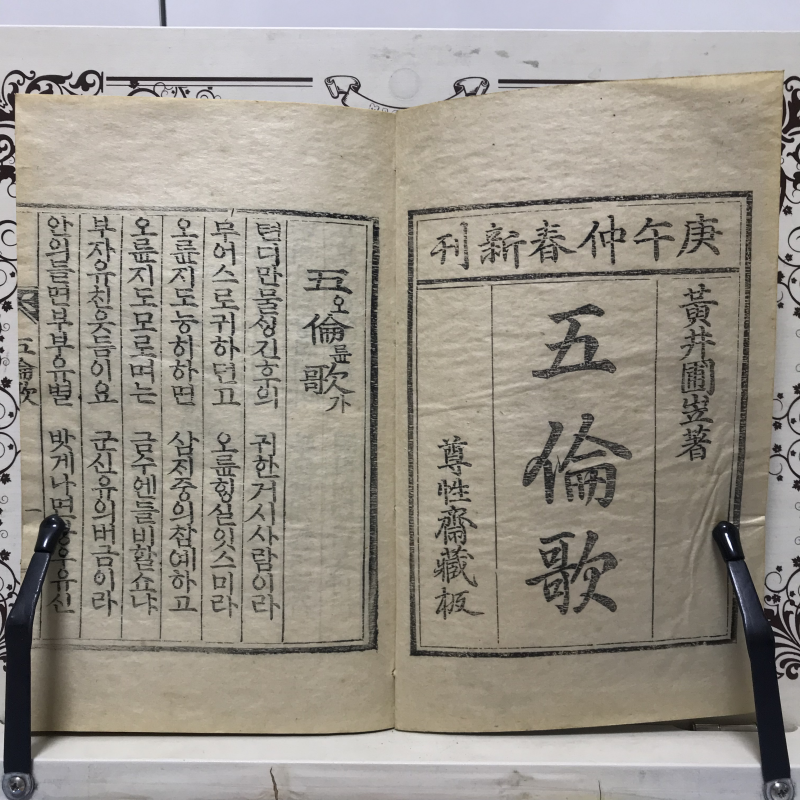 庚午仲春新刊
黃井圃岦著
五倫歌
尊性齋藏板
五오倫륜歌가
텬디만물생긴후의 귀한거시사람이라
무어스로귀하던고 오륜행실잇스미라
오륜지도능히하면 삼재중의참예하고
오륜지도모로며는 금수엔들비할쇼냐
부자유친웃듬이요 군신유의버금이라
안의들면부부유별 밧게나면붕우유신
五倫歌 一